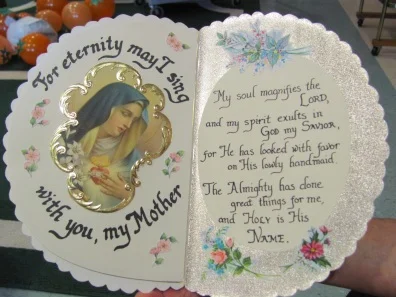 For eternity may I sing
with you, my Mother
"My soul magnifies the
LORD,
and my spirit exults in
GOD my SAVIOR,
for He has looked with favor
on His lowly handmaid.
The Almighty has done
great things for me,
and HOLY is His
NAME.